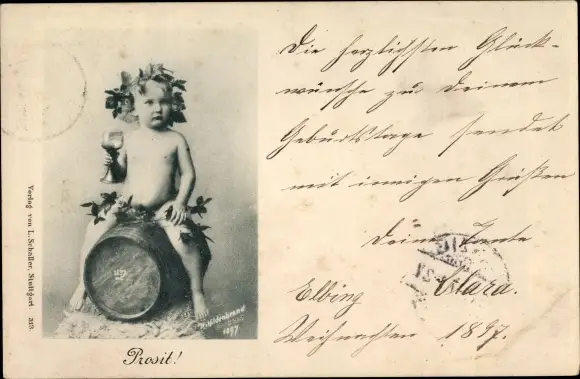 Die herzlichsten Glück-
wünsche zu Deinem
Geburtstage sendet
mit innigen Grüßen
Deine Tante
Clara.
Elbing
Weihnachten 1897.
Prosit!
Verlag von L. Schaller, Stuttgart
Hildenbrand
1897